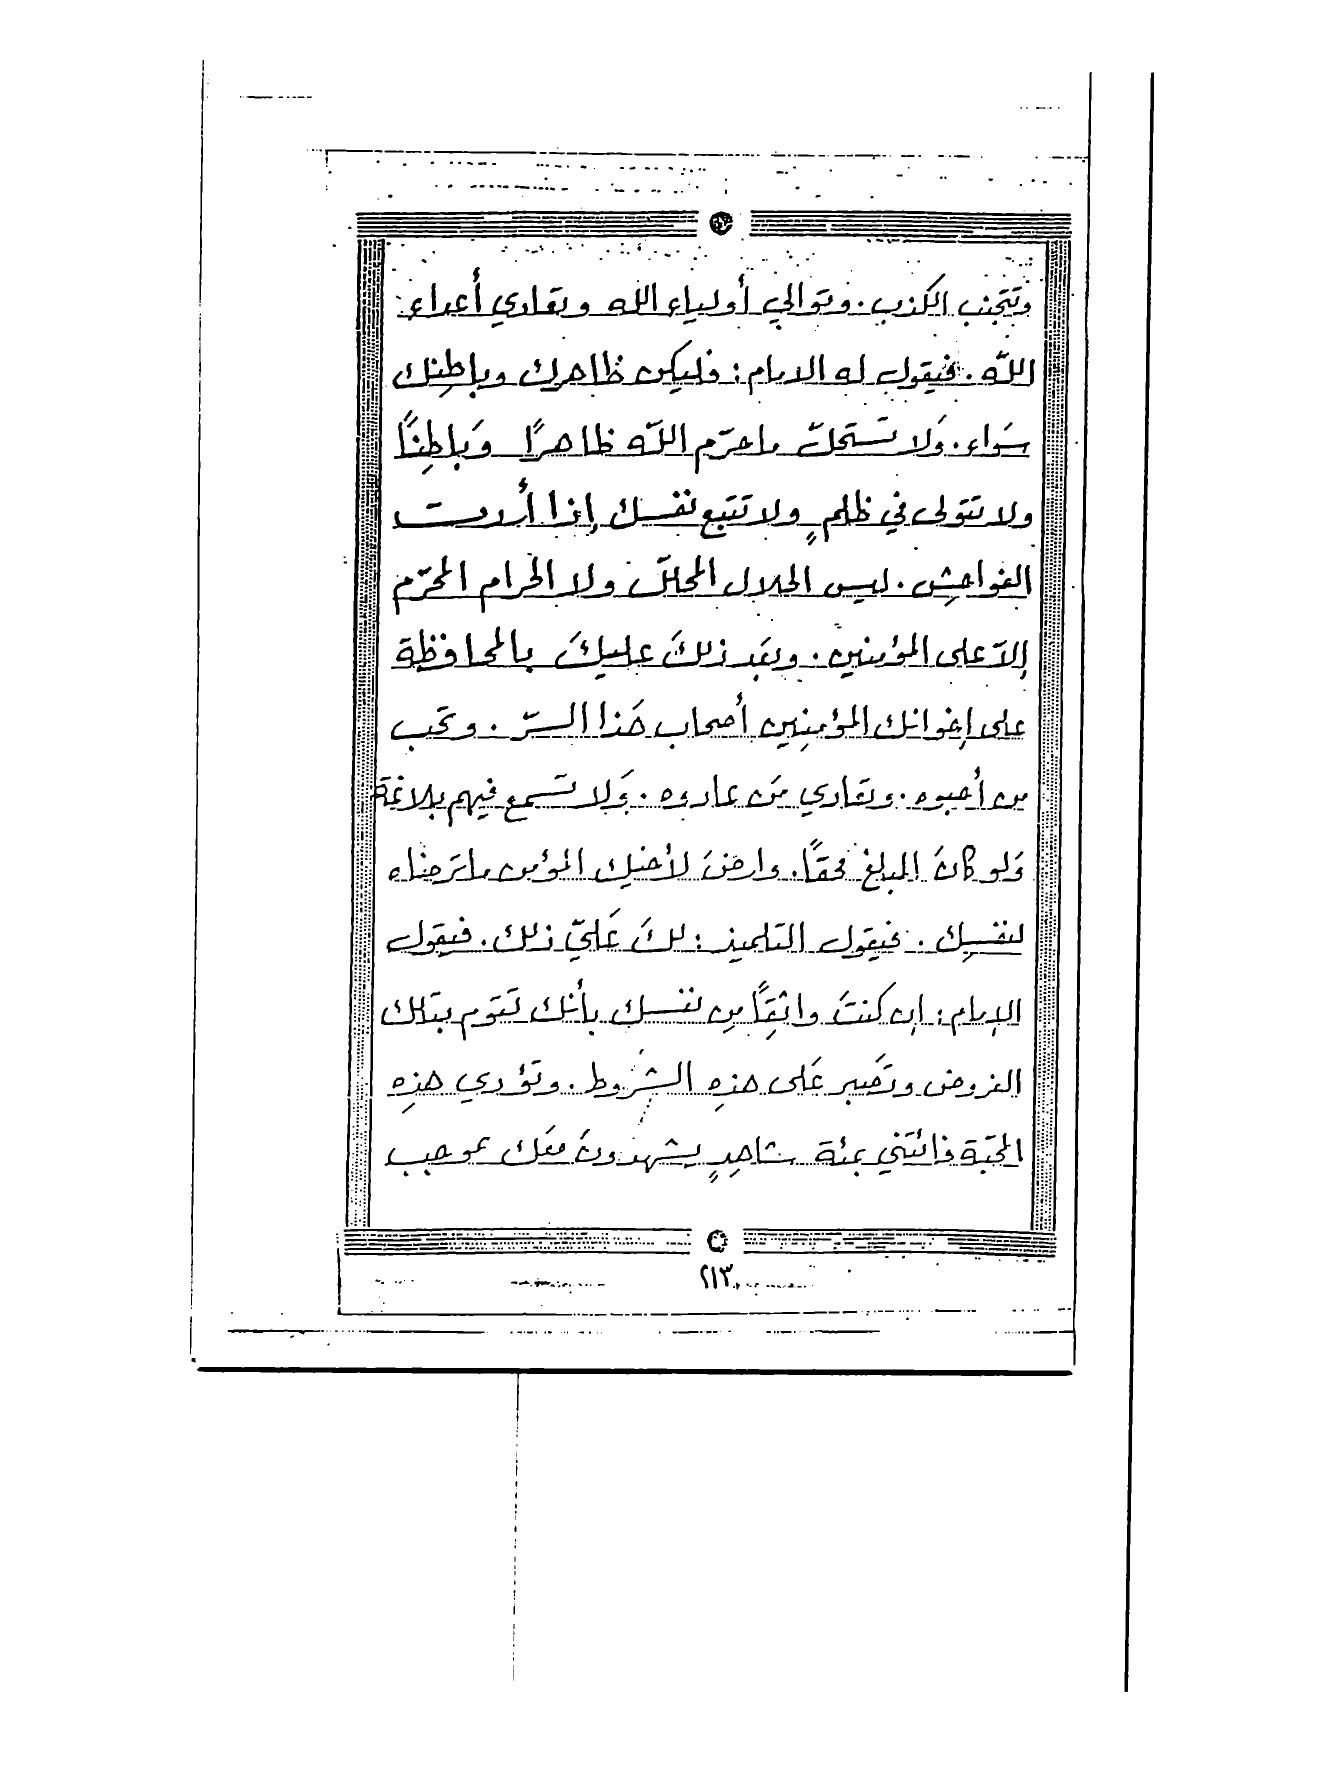 وتتجنب الكذب . وتوالي أولياء الله وتعادي أعداء
اللّه . فيقول له الامام : فليكن ظاهرك وباطِنك
سَواء . وَلا تَستَحلّ ما حرّم اللّه ظاهرًا وَباطِنًا
ولا تتولى في ظلمٍ ولا تتبع نفسك إذا أردت
الفواحِش . ليس الحلال المحللّ ولا الحرام المحرّم
إلاّ على المؤمنين . وبعَد ذلكَ عليكَ بالمحافظة
على إخوانك المؤمنِين أصحاب هَذا السرّ . وتحَب
من أحبوه . وتعَادي مَن عادوه . وَلا تسَمع فيهم بلاغَة
وَلو كانَ المبلغ محقاً . وارضَ لأخيك المؤمن ما ترَضاه
لنفسِك . فيقول التلميذ : لكَ عَليّ ذلك . فيقول
الإمام : إن كنتَ واثِقاً مِن نفسك بأنك تَقوم بتلك
الفروض وتصَبر عَلى هذهِ الشروط . وتؤدي هذِه
المحَبّة فائتَني بمئة شاهِدٍ يشهدونَ معَك بموجب
٢١٣